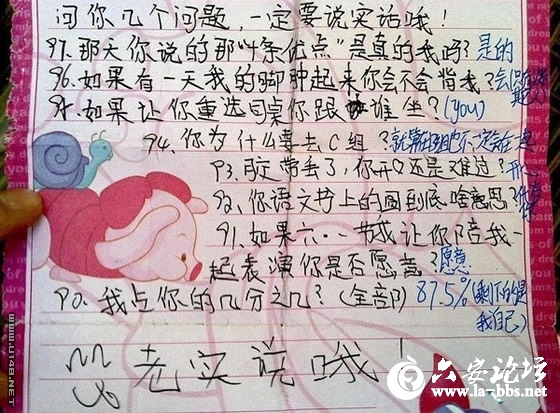 问你几个问题,一定要说实话哦!
97.那天你说的那"条优点"是真的我吗?是的
96.如果有一天我的脚肿起来你会不会背我?会
95.如果让你重选同桌你跟谁坐?(you)
94.你为什么要去C组?就算在组也不一定
93.假定带丢了,你开心还是难过?开心
92.你语文书上的图到底啥意思?
91.如果六·一节我让你陪我一
起表演你是否愿意?愿意
90.我占你的几分之几?(全部)87.5%(剩下的是
我自己)
老实说哦!
六安论坛
www.la-bbs.net
WWW.U148.NET